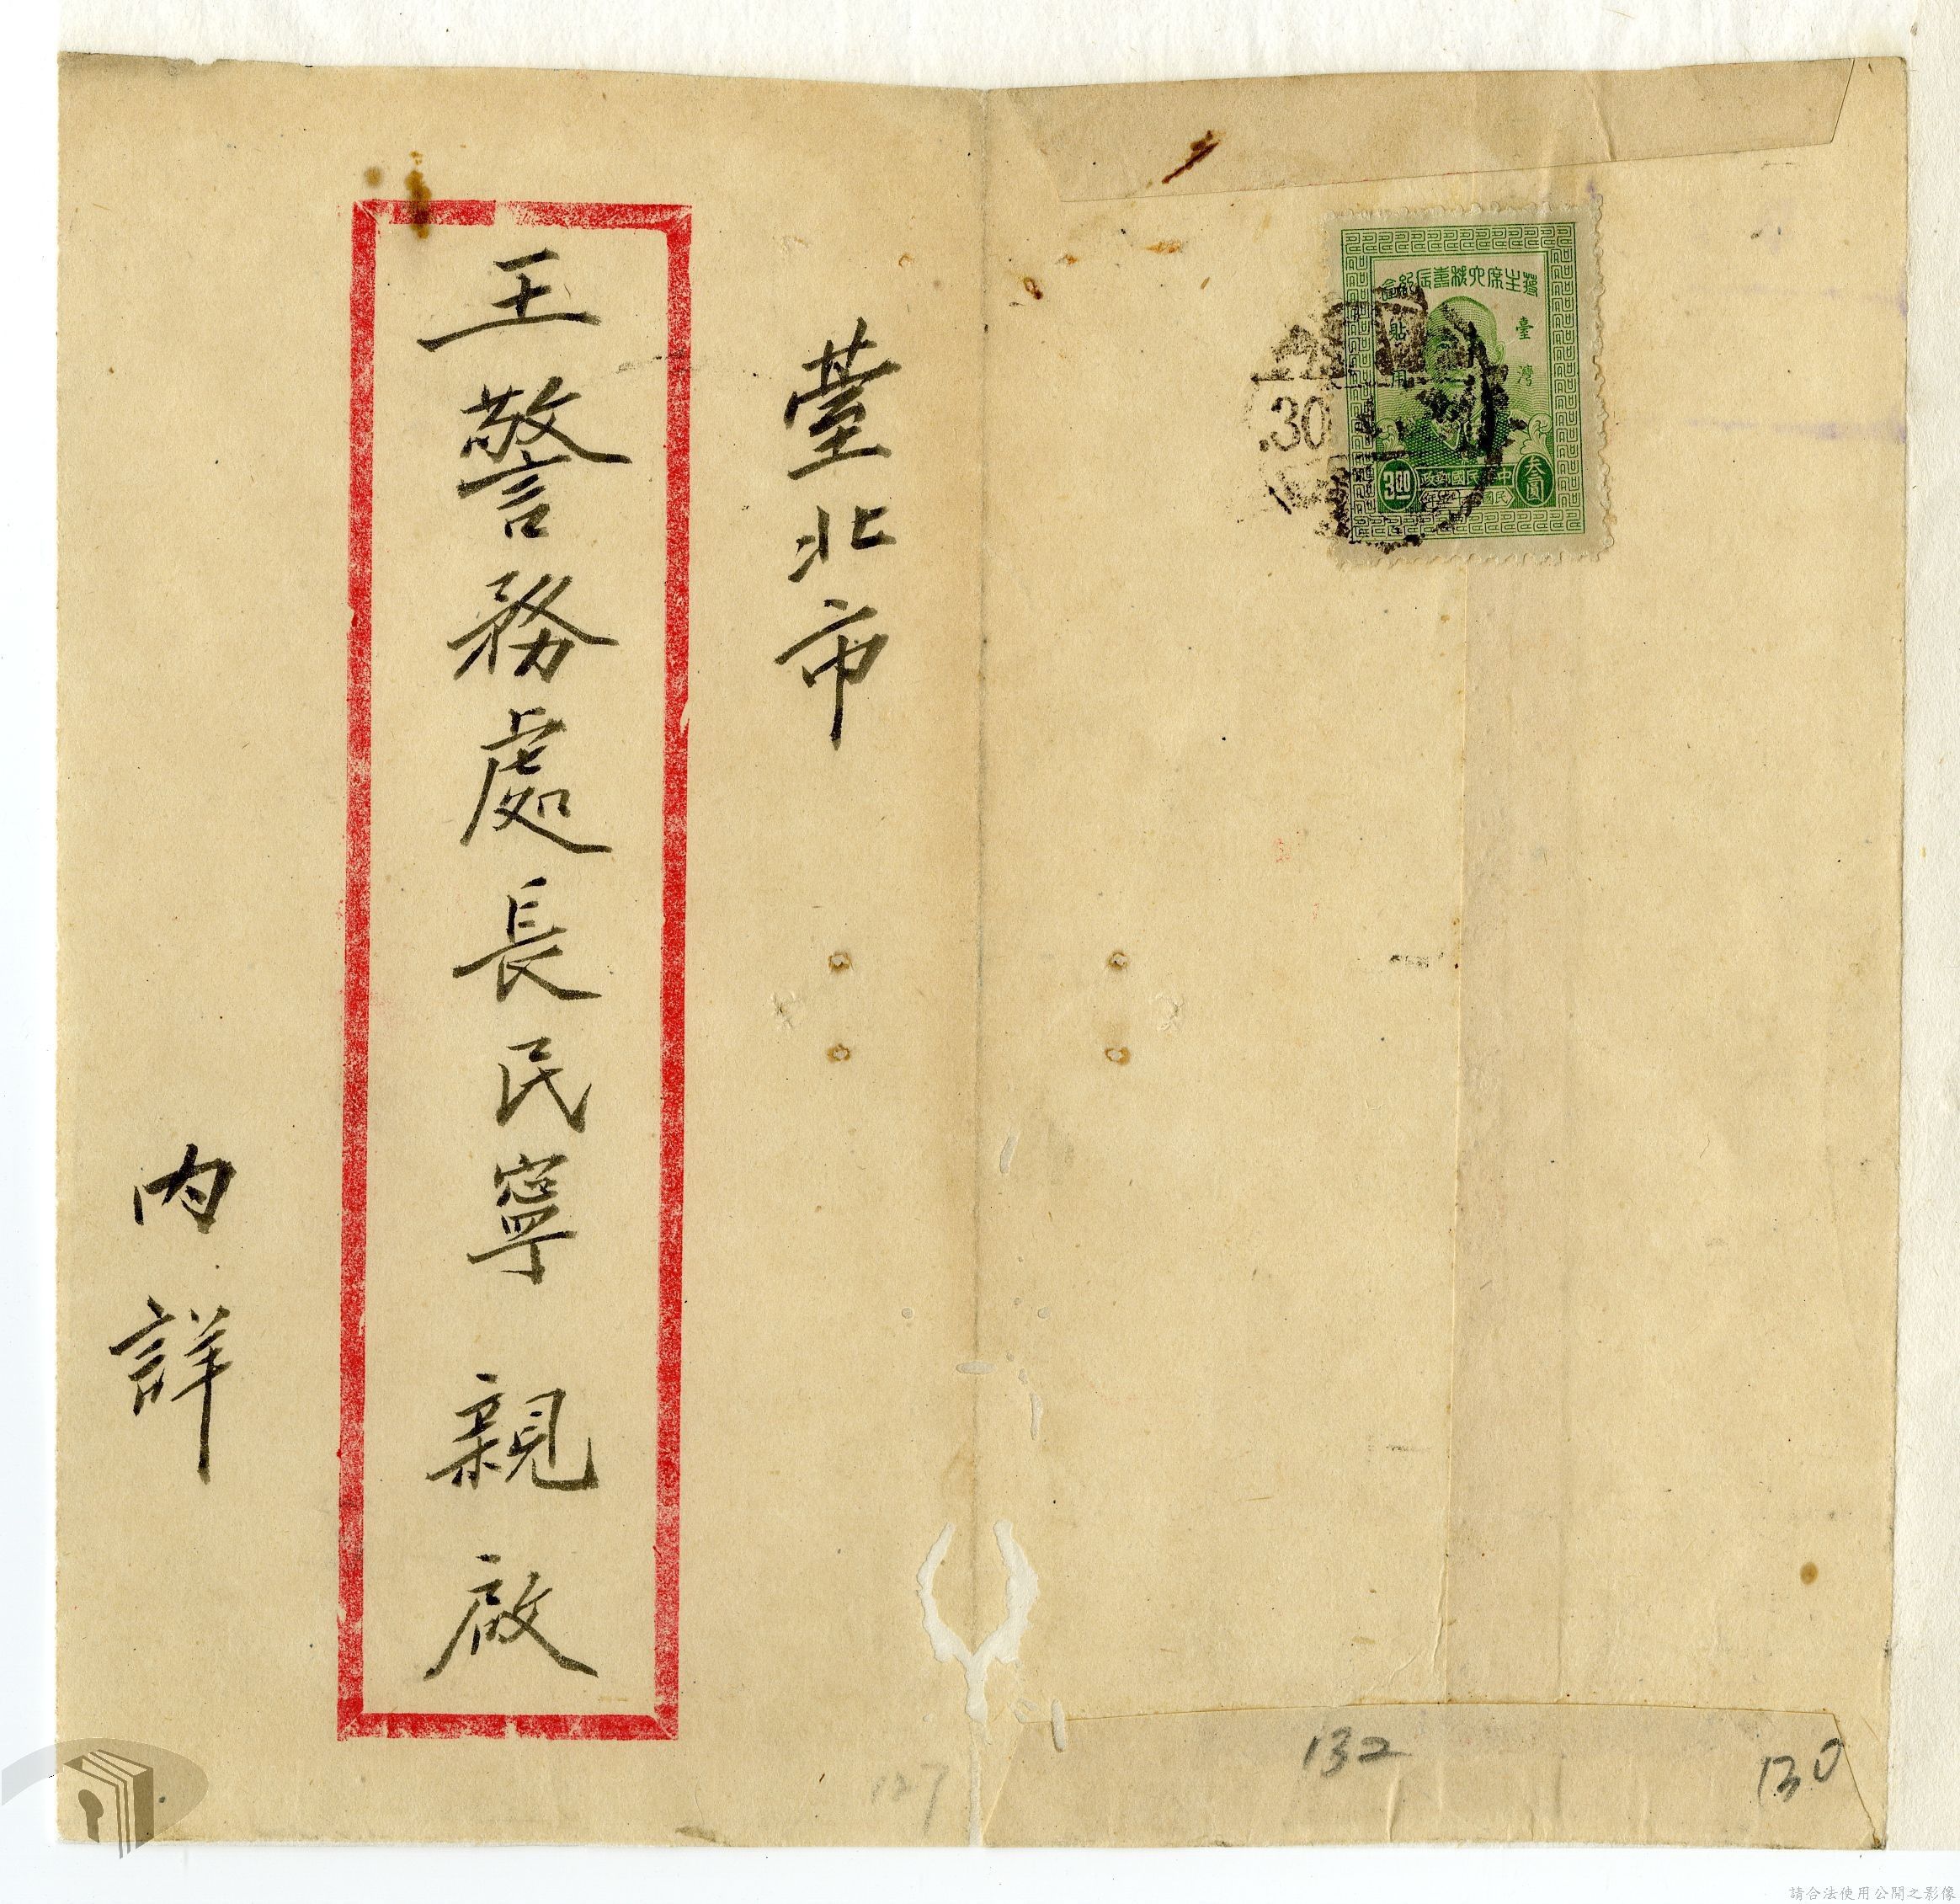 臺北市
王警務處長民寧 親啟
內詳
蔣主席六秩壽辰紀念
臺灣
貼 用
叁圓
3.00
中華民國郵政
.30
132
130
127
請合法使用公開之影像